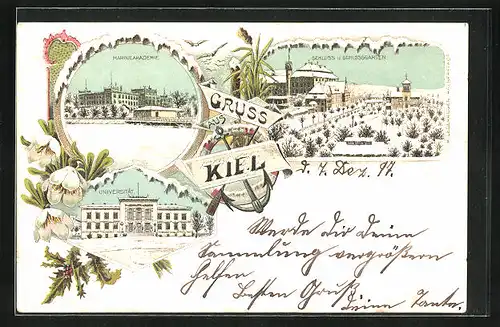 MARINEAKADEMIE
SCHLOSS U. SCHLOSSGARTEN
GRUSS
AUS
KIEL
UNIVERSITÄT
d. 7. Dez. 99.
Werde dir deine
Sammlung vergrößern
helfen
Besten Gruß
Deine Tante.